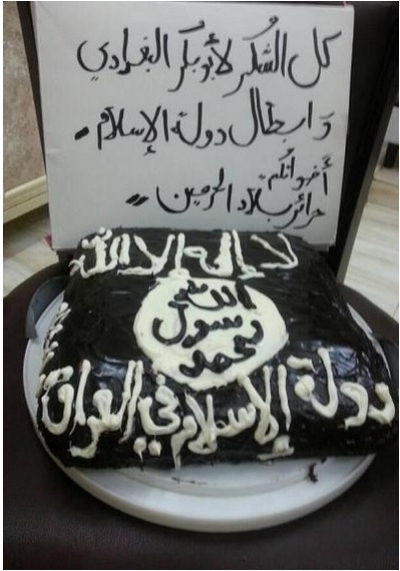 كل الشكر لأبو بكر البغدادي
و ابطال دولة الإسلام
أخواتكم
حرائر بلاد الحرمين
لا إله إلا الله
الله
رسول
محمد
دولة الإسلام في العراق